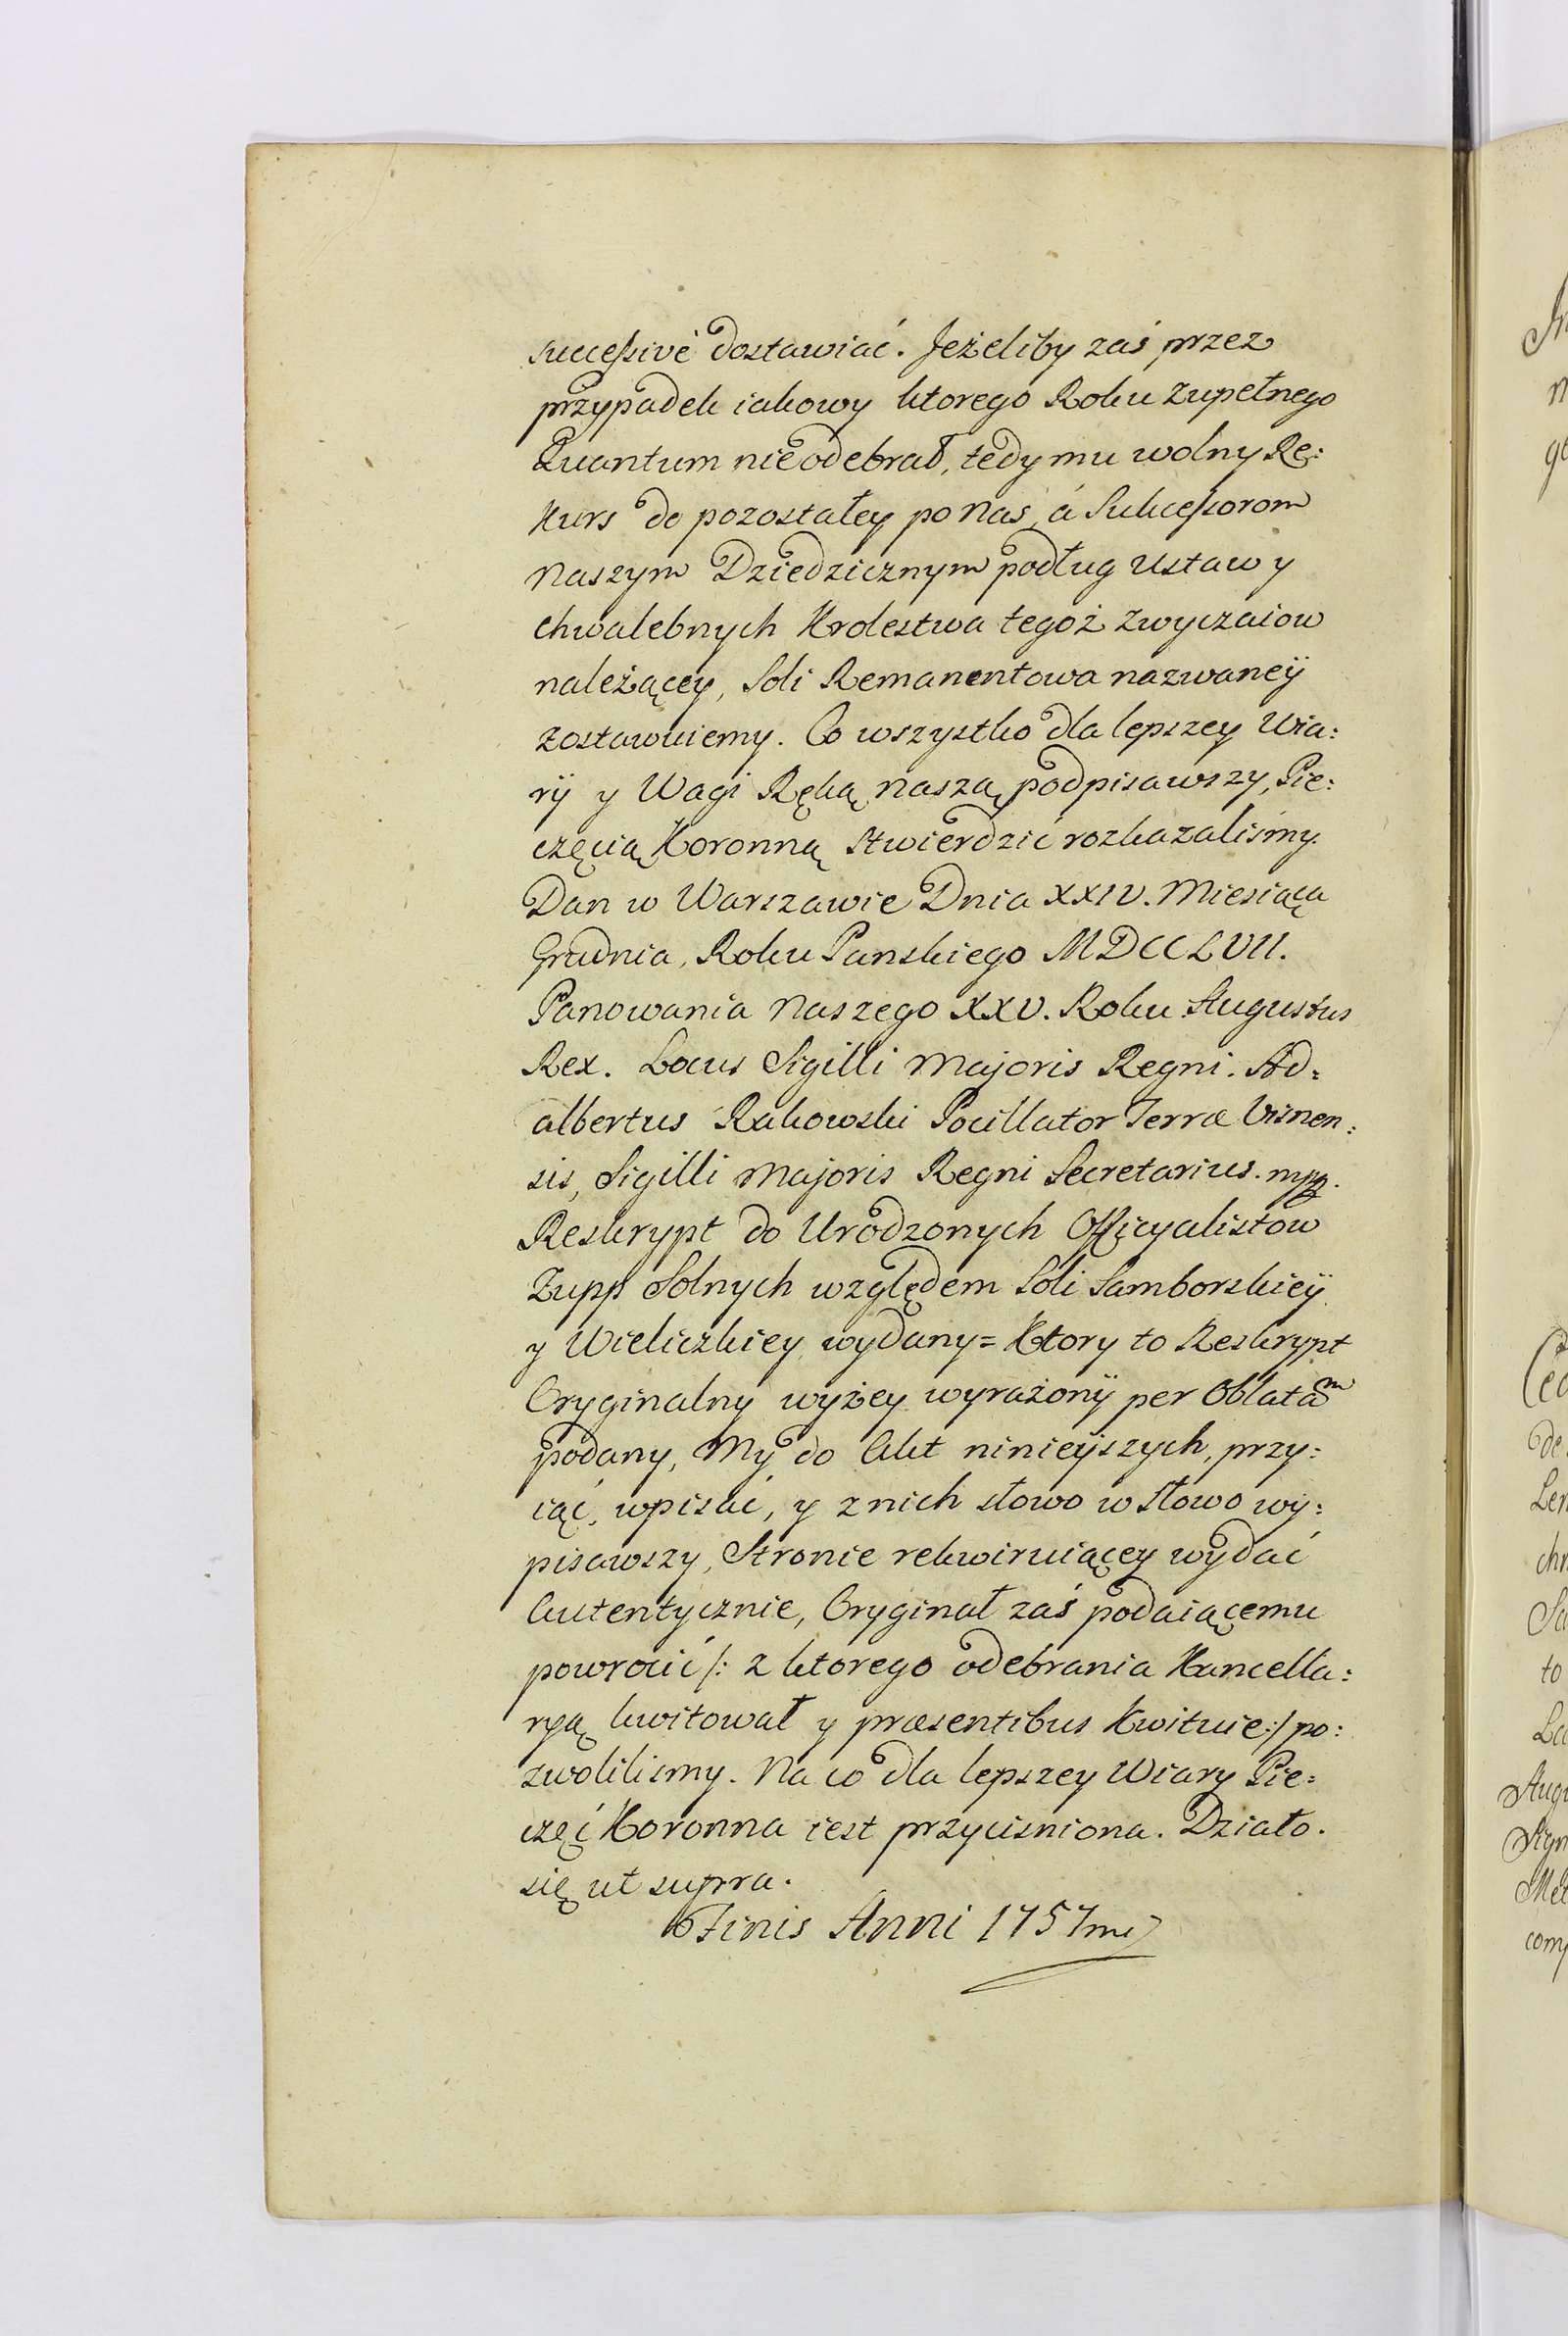 successivè dostawiać. Jeżeliby zaś przez
przypadek iakowy ktorego Roku zupełnego
Quantum nieodebrał, tedy mu wolny Rę:
kurs do pozostałey po Nas, á Sukcessorom
Naszym Dziedzicznym podług Ustaw y
chwalebnych Krolestwa tegoż zwyczaiow
należącey, Soli Remanentowa nazwaneÿ
zostawuiemy. Co wszystko dla lepszey Wia:
rÿ y Wagi Ręką Naszą podpisawszy, Pie:
częcią Koronną stwierdzić rozkazaliśmy.
Dan w Warszawie Dnia XXIV. Miesiąca
Grudnia, Roku Panskiego MDCCLVII.
Panowania Naszego XXV. Roku. Augustus
Rex. Locus Sigilli Majoris Regni. Ad:
albertus Rakowski Pocillator Terræ Visnen:
sis, Sigilli Majoris Regni Secretarius. mpp.
Reskrypt do Urodzonych Officyalistow
Zupp Solnych względem Soli Samborskieÿ
y Wieliczkiey wydany = Ktory to Reskrypt
Oryginalny wyżey wyrażonÿ per Oblatam
podany, My do Akt ninieÿszych, przy:
iąć, wpisać, y z nich słowo w słowo wy:
pisawszy, Stronie rekwiruiącey wydać
Autentycznie, Oryginał zaś podaiącemu
powrocić /: z ktorego odebrania Kancella:
ryą kwitował y præsentibus Kwituie :/ po:
zwolilismy. Na co dla lepszey Wiary Pie:
częć Koronna iest przycisniona. Działo.
się ut supra.
Finis Anni 1757mi